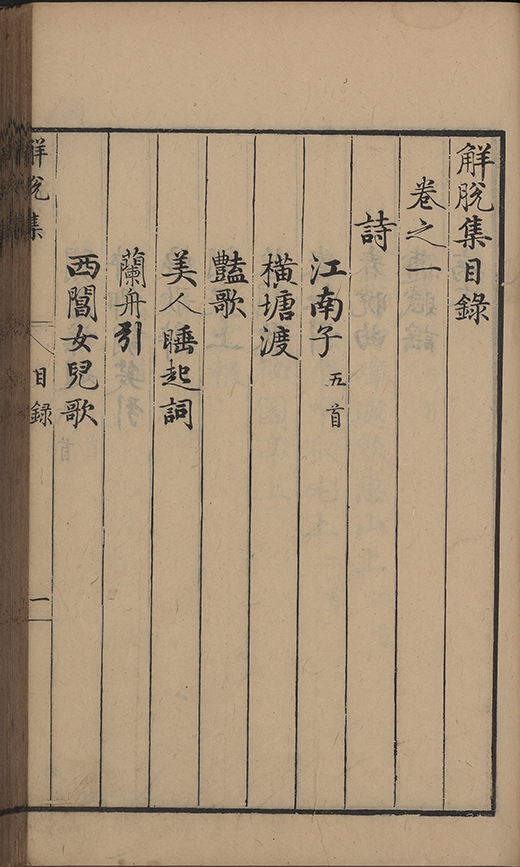 解脫集目錄
卷之一
詩
江南子 五首
橫塘渡
豔歌
美人睡起詞
蘭舟引
西閶女兒歌
解脫集 目錄 一